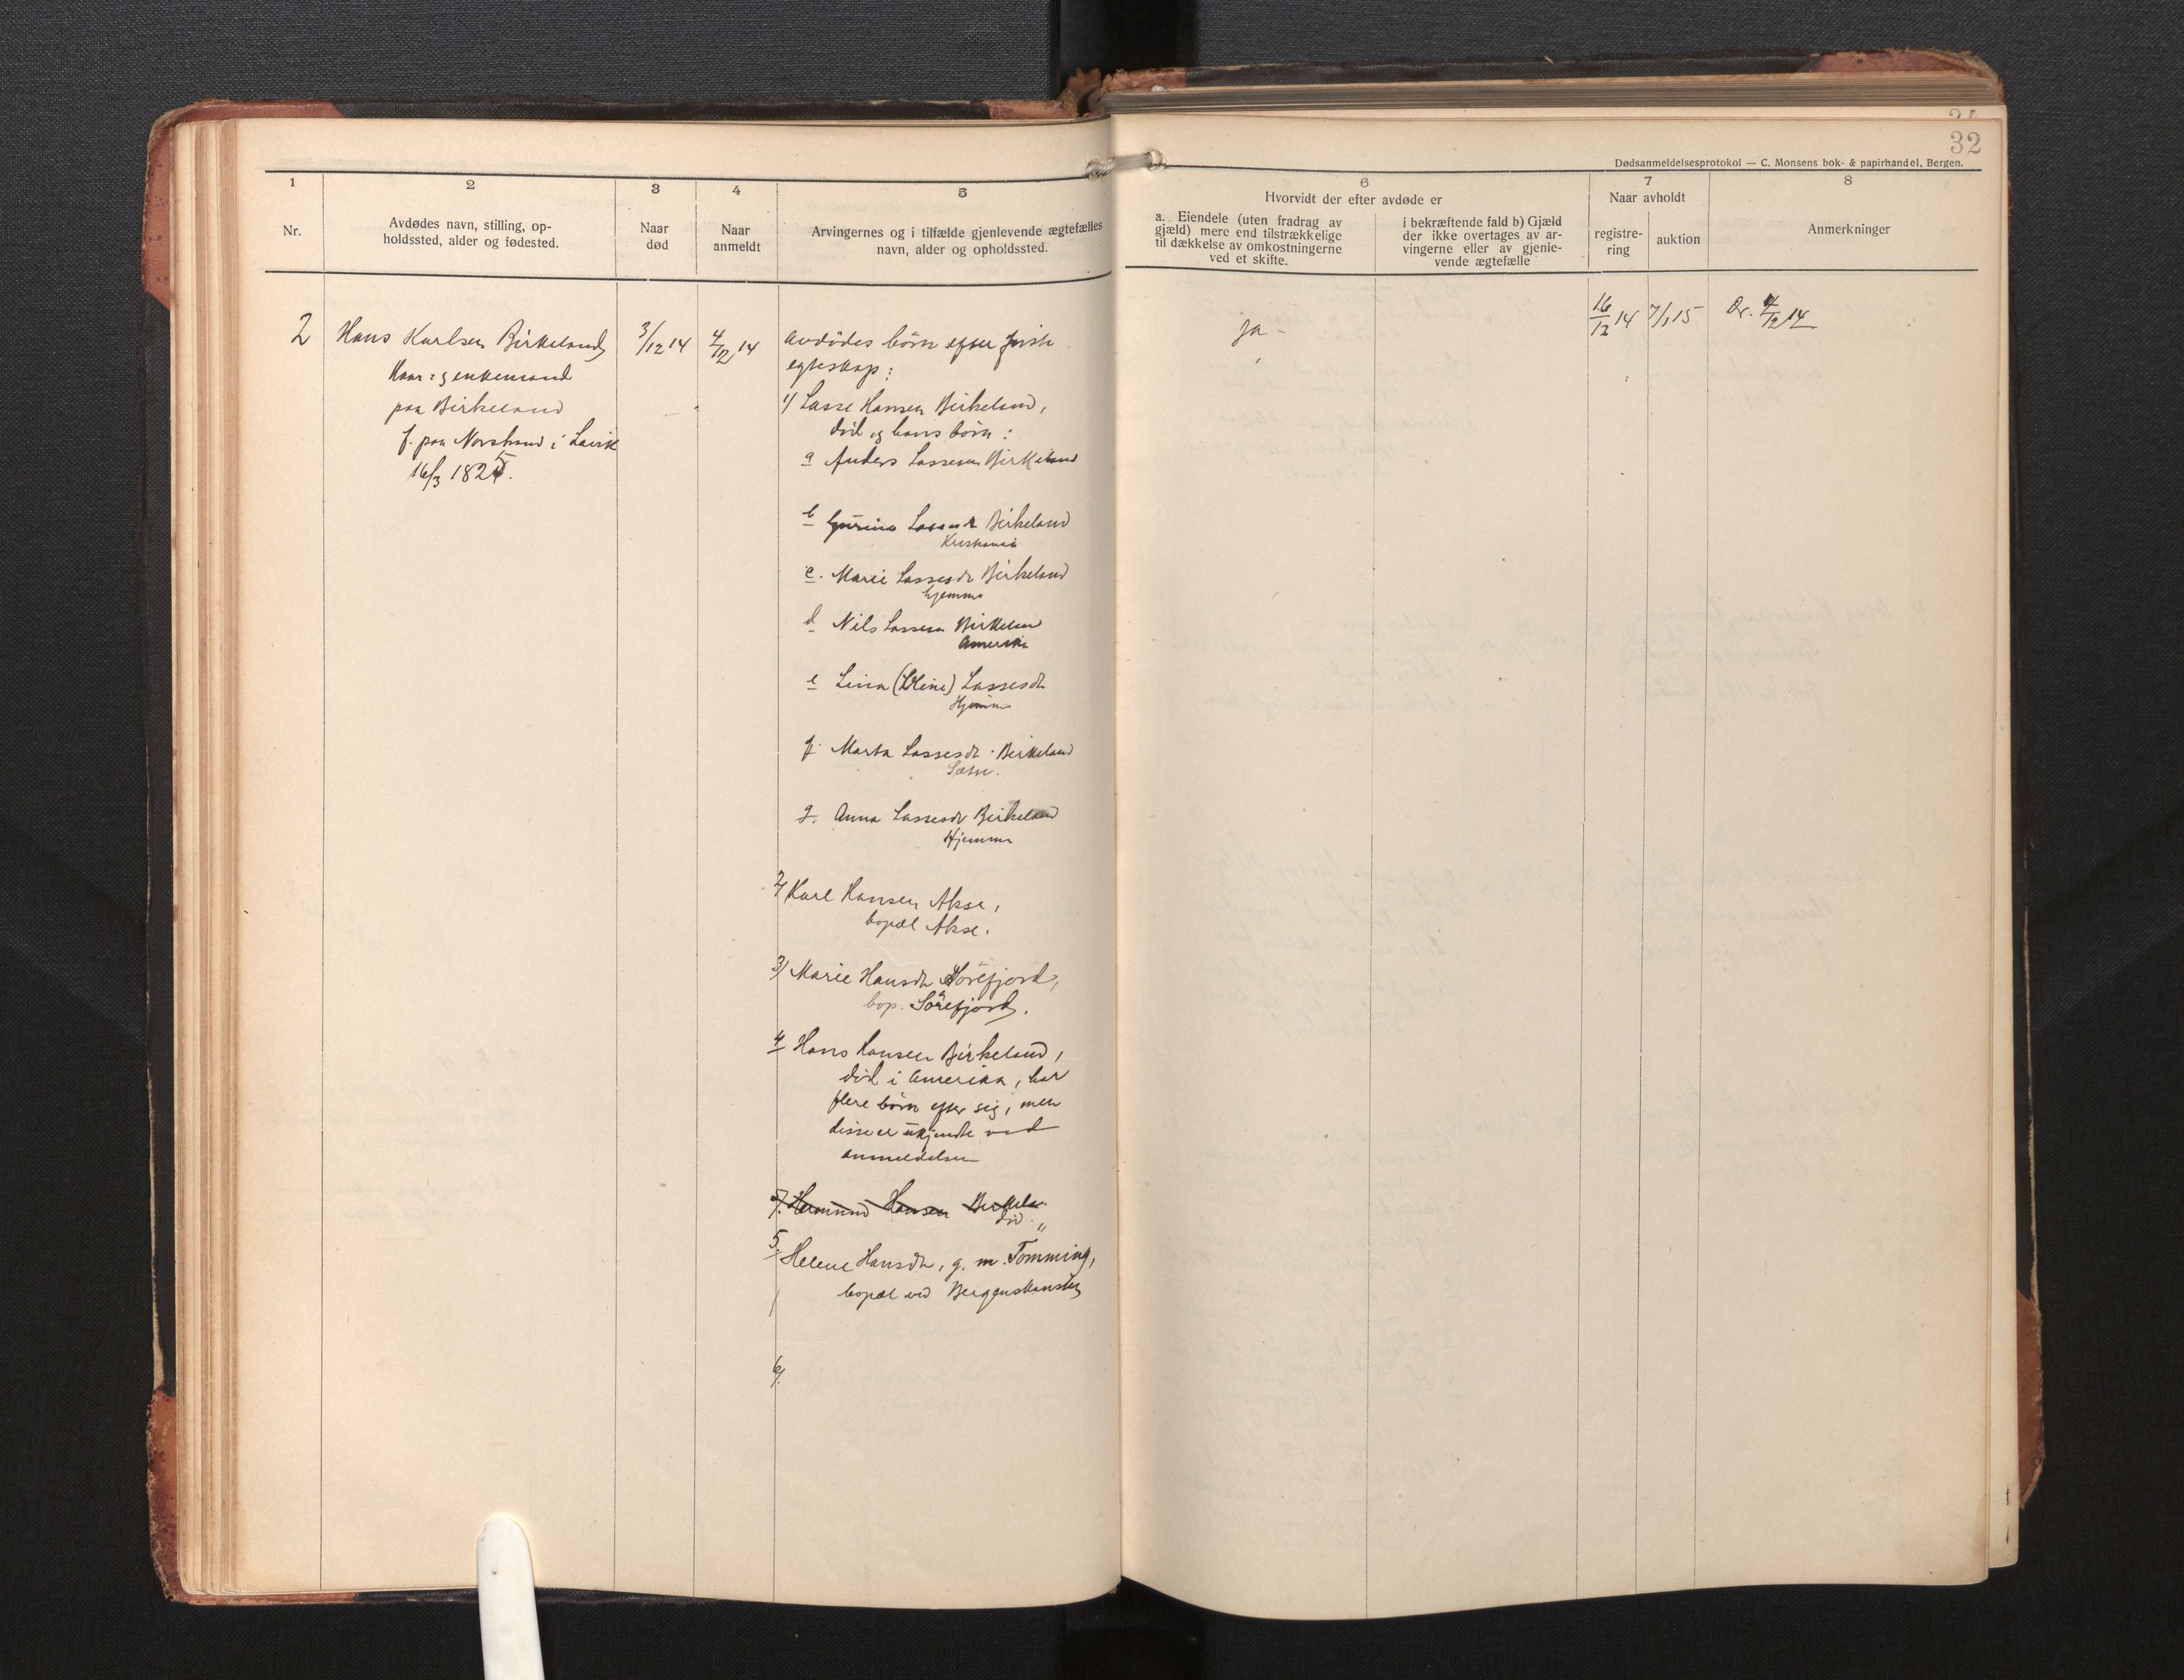 32
Dødsanmeldelsesprotokol — C. Monsens bok- & papirhandel, Bergen.
1
Nr.
2
Avdødes navn, stilling, op-
holdssted, alder og fødested.
3
Naar
død
4
Naar
anmeldt
5
Arvingernes og i tilfælde gjenlevende ægtefælles
navn, alder og opholdssted.
6
Hvorvidt der efter avdøde er
a. Eiendele (uten fradrag av
gjæld) mere end tilstrækkelige
til dækkelse av omkostningerne
ved et skifte.
i bekræftende fald b) Gjæld
der ikke overtages av ar-
vingerne eller av gjenle-
vende ægtefælle
7
Naar avholdt
registre-
ring
auktion
8
Anmerkninger
2
Hans Karlsen Birkeland
Kaar- g enkemand
paa Birkeland
f. paa Norstrand i Lavik
16/3 1825.
3/12 14
4/12 14
avdødes børn efter første
egteskap:
1/ Lasse Hansen Birkeland,
død og hans børn:
a Anders Lassesen Birkeland
b Lassesdr Birkeland
Kristiania
c. Marie Lassesdr Birkeland
hjemme
d Nils Lassesen Birkeland
Amerika
e Lina (Oline) Lassesdr
Hjemme
f. Marta Lassesdr. Birkeland
g. Anna Lassesdr Birkeland
Hjemme
2/ Karl Hansen Akse,
bopæl Akse.
3/ Marie Hansdr Sörefjord,
bop. Sörefjord.
4 Hans Hansen Birkeland,
död i Amerika, har
flere børn efter sig, men
disse er ukjendte ved
anmeldelsen
Hermund Hansen Birkela.
död "
5. Helene Hansdr, g. m. Tomming,
bopæl ved Bergenskanten
6/.
ja -
16/12 14
7/1 15
Dr. 4/12 14